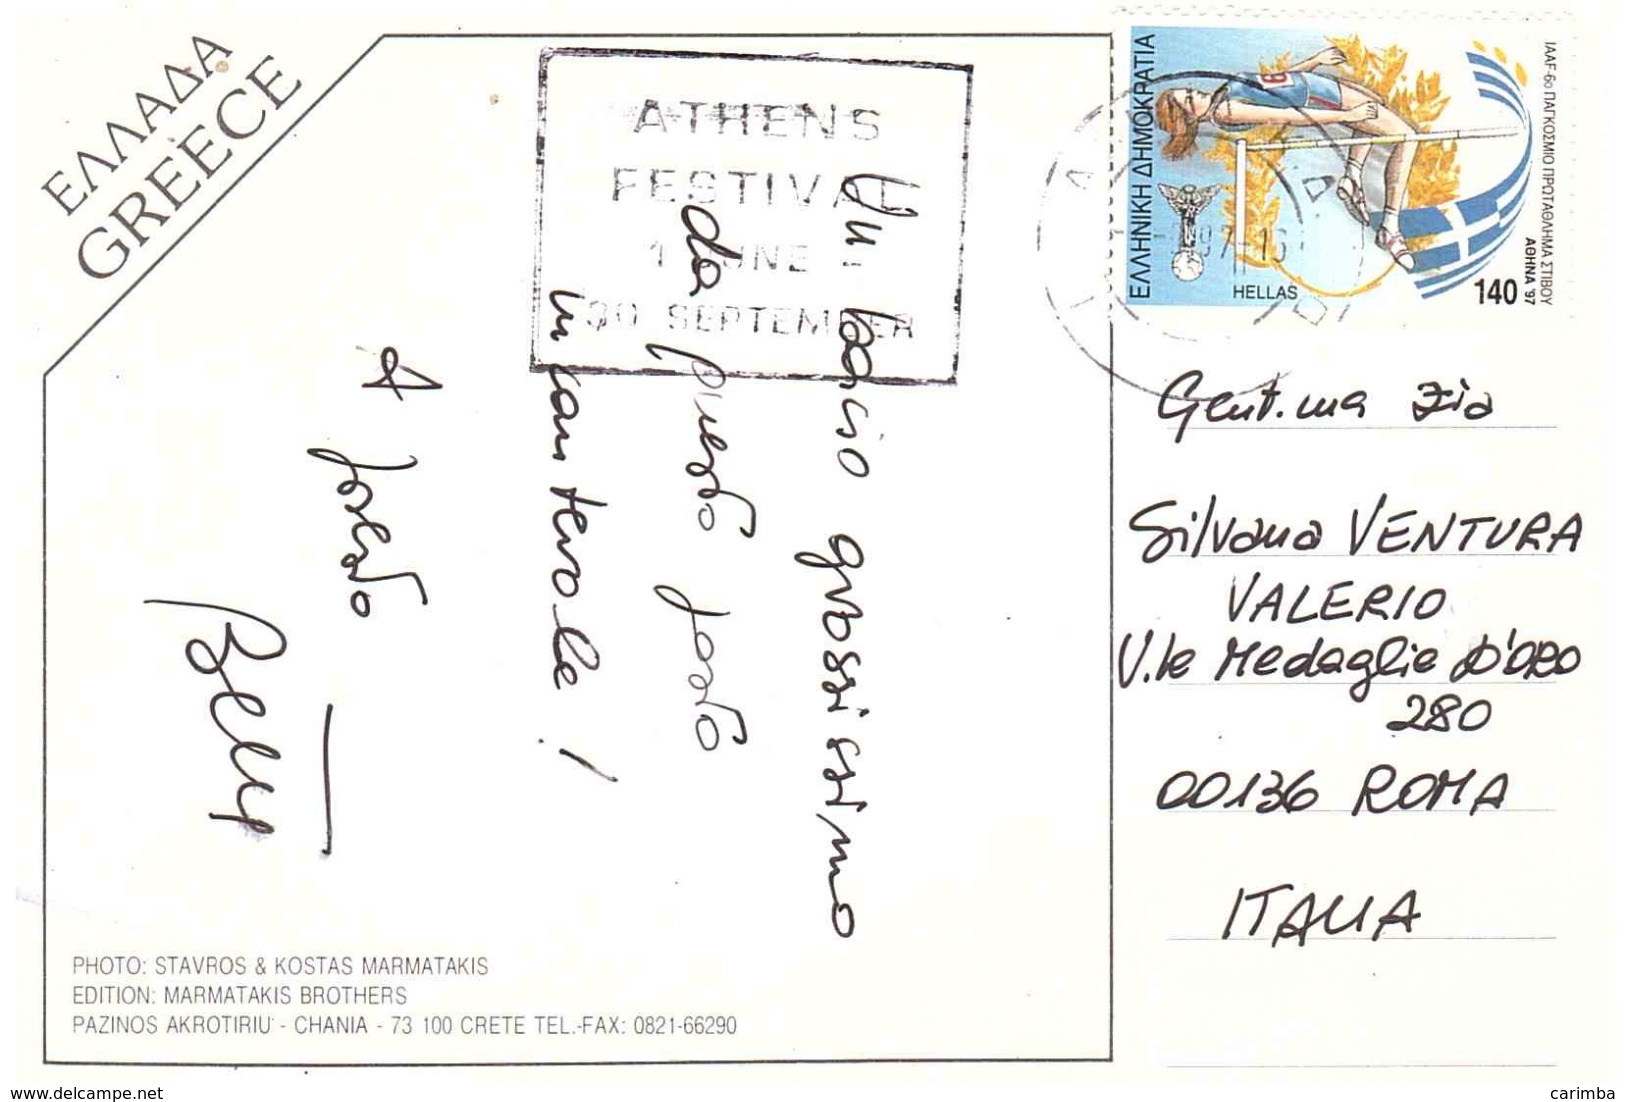 ΕΛΛΑΔΑ
GREECE
ATHENS
FESTIVAL
1 JUNE -
30 SEPTEMBER
Un bacio grossissimo
da questo posto
incantevole!
A presto
ΕΛΛΗΝΙΚΗ ΔΗΜΟΚΡΑΤΙΑ
HELLAS
140
IAAF-6ο ΠΑΓΚΟΣΜΙΟ ΠΡΩΤΑΘΛΗΜΑ ΣΤΙΒΟΥ
ΑΘΗΝΑ '97
Gent.ma Zia
Silvana VENTURA
VALERIO
V.le Medaglie D'ORO
280
00136 ROMA
ITALIA
PHOTO: STAVROS & KOSTAS MARMATAKIS
EDITION: MARMATAKIS BROTHERS
PAZINOS AKROTIRIU - CHANIA - 73 100 CRETE TEL.-FAX: 0821-66290
www.delcampe.net
carimba